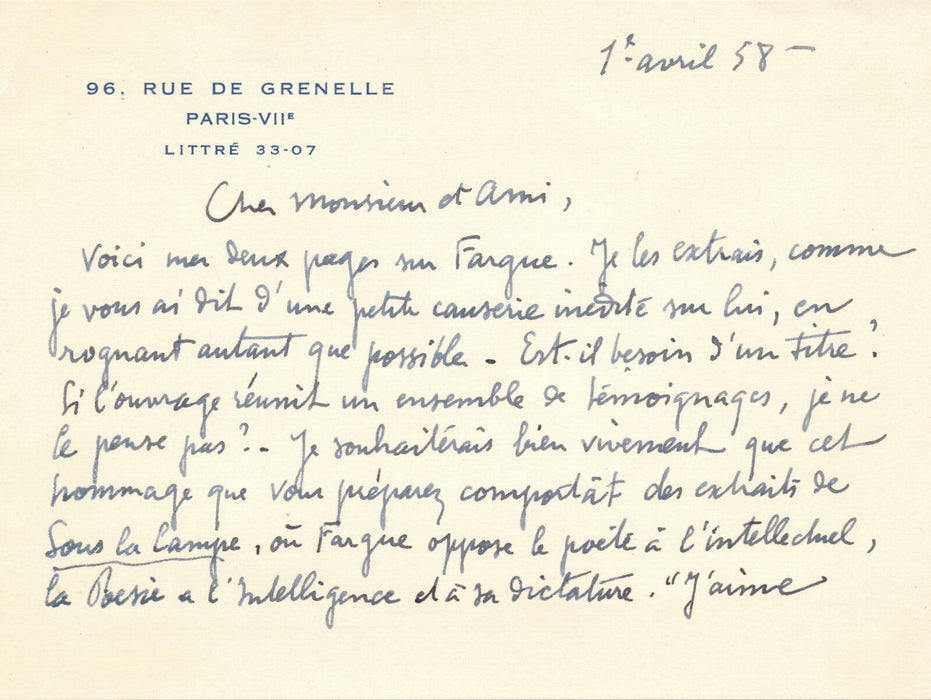 1er avril 58 -
96, RUE DE GRENELLE
PARIS-VIIE
LITTRÉ 33-07
Cher Monsieur et Ami,
Voici mes deux pages sur Fargue. Je les extrais, comme
je vous ai dit d'une petite causerie inédite sur lui, en
rognant autant que possible - Est-il besoin d'un titre ?
Si l'ouvrage réunit un ensemble de témoignages, je ne
le pense pas ? - Je souhaiterais bien vivement que cet
hommage que vous préparez comportât des extraits de
Sous la Lampe, où Fargue oppose le poète à l'intellectuel,
la Poésie a l'Intelligence et à sa dictature. "J'aime